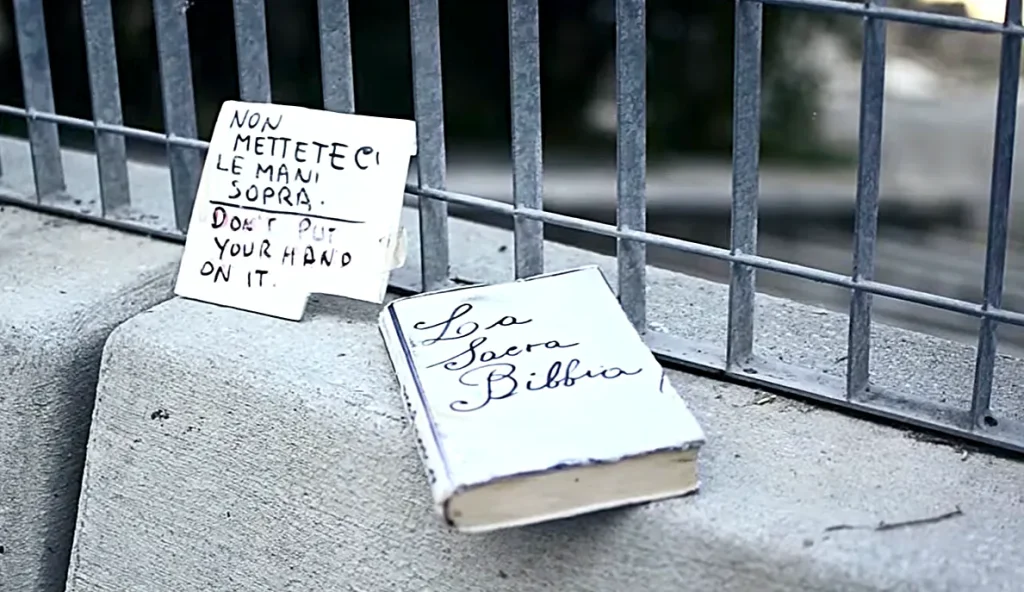 NON
METTETECI
LE MANI
SOPRA.
DON'T PUT
YOUR HAND
ON IT.
La
Sacra
Bibbia